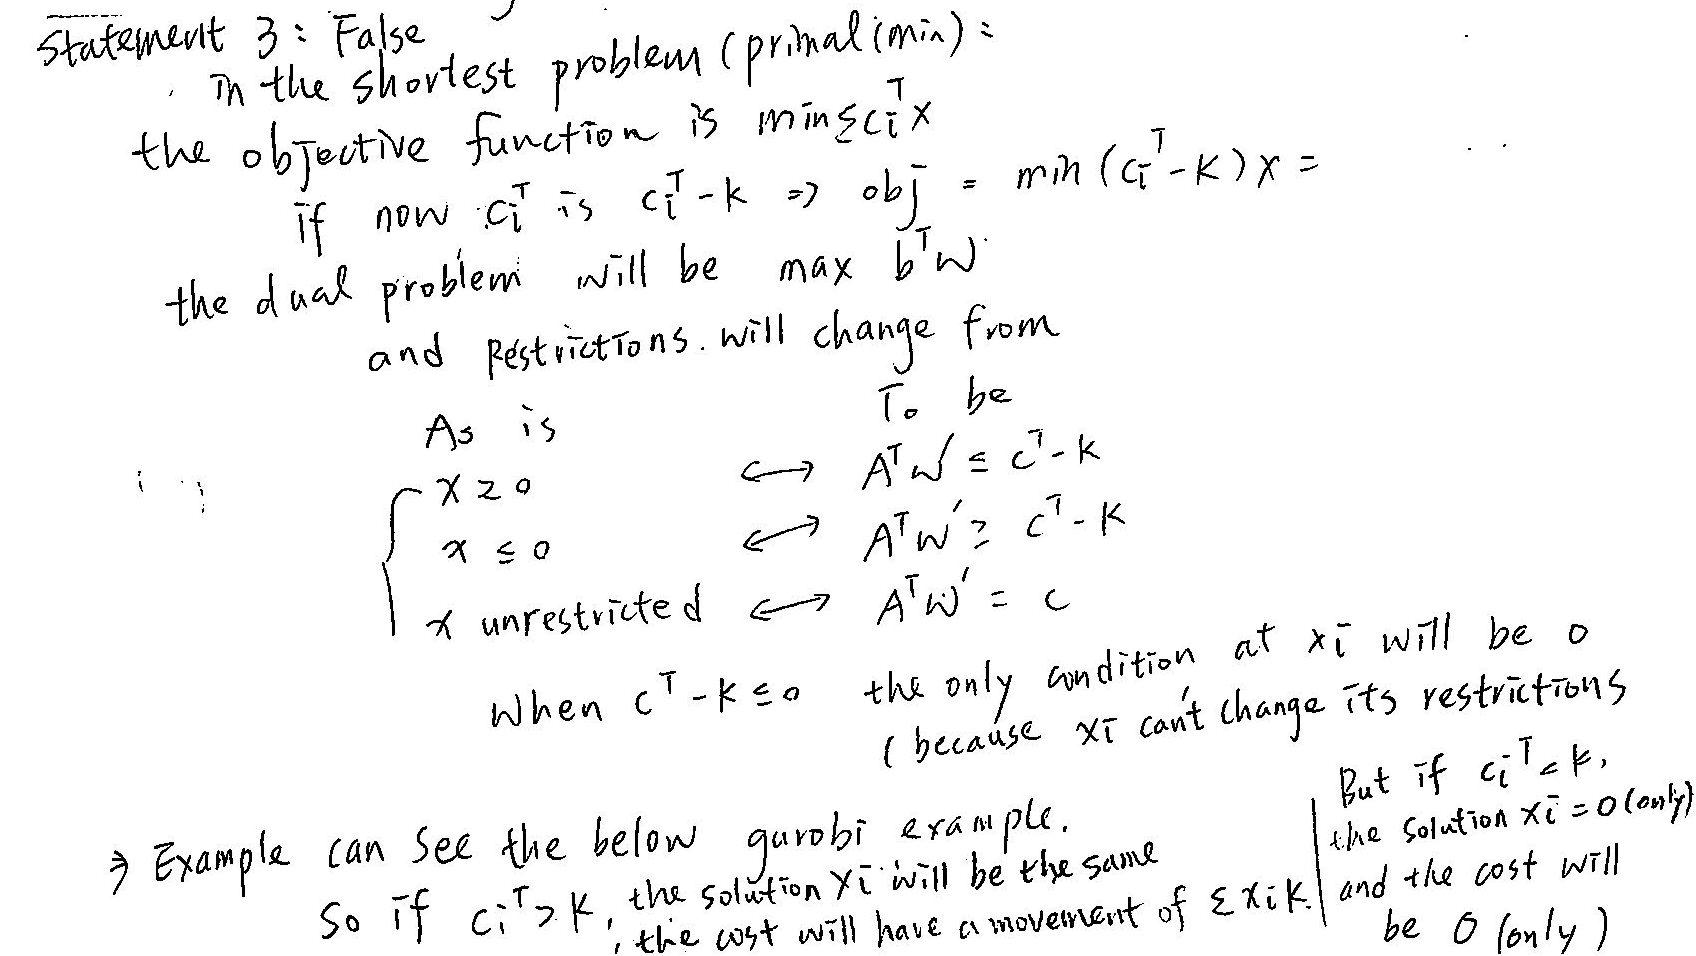 Statement 3: False
In the shortest problem (primal(min):
the objective function is min Σciᵀx
if now ciᵀ is ciᵀ-k ⇒ obj = min (ciᵀ-k)x =
the dual problem will be max bᵀw
and Restrictions. will change from
As is To be
x ≥ 0 ↔ Aᵀw' ≤ cᵀ-k
x ≤ 0 ↔ Aᵀw' ≥ cᵀ-k
x unrestricted ↔ Aᵀw' = c
When cᵀ-k ≤ 0 the only condition at xi will be 0
(because xi can't change its restrictions
⇒ Example can see the below gurobi example.
So if ciᵀ > k, the solution xi will be the same
, the cost will have a movement of Σxik.
But if ciᵀ < k,
the solution xi = 0 (only)
and the cost will
be 0 (only)